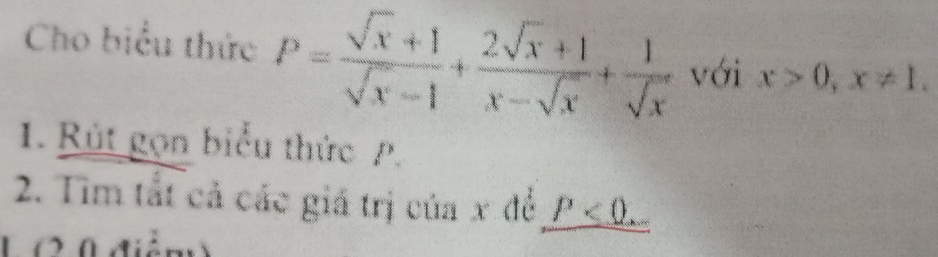 Cho biểu thức P = \frac{\sqrt{x}+1}{\sqrt{x}-1} + \frac{2\sqrt{x}+1}{x-\sqrt{x}} + \frac{1}{\sqrt{x}} với x > 0, x ≠ 1.
1. Rút gọn biểu thức P.
2. Tìm tất cả các giá trị của x để P < 0.
(2,0 điểm)